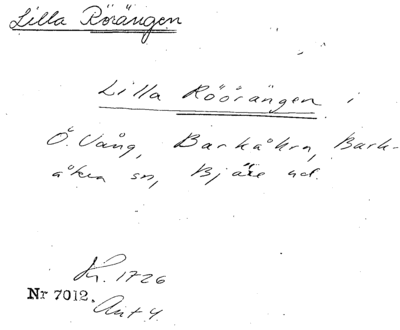 Lilla Rörängen
Lilla Röörängen i
Ö. Vång, Barkåkra, Bark-
åkra sn, Bjäre hd.
Kr. 1726
Nr 7012. Ant 4.